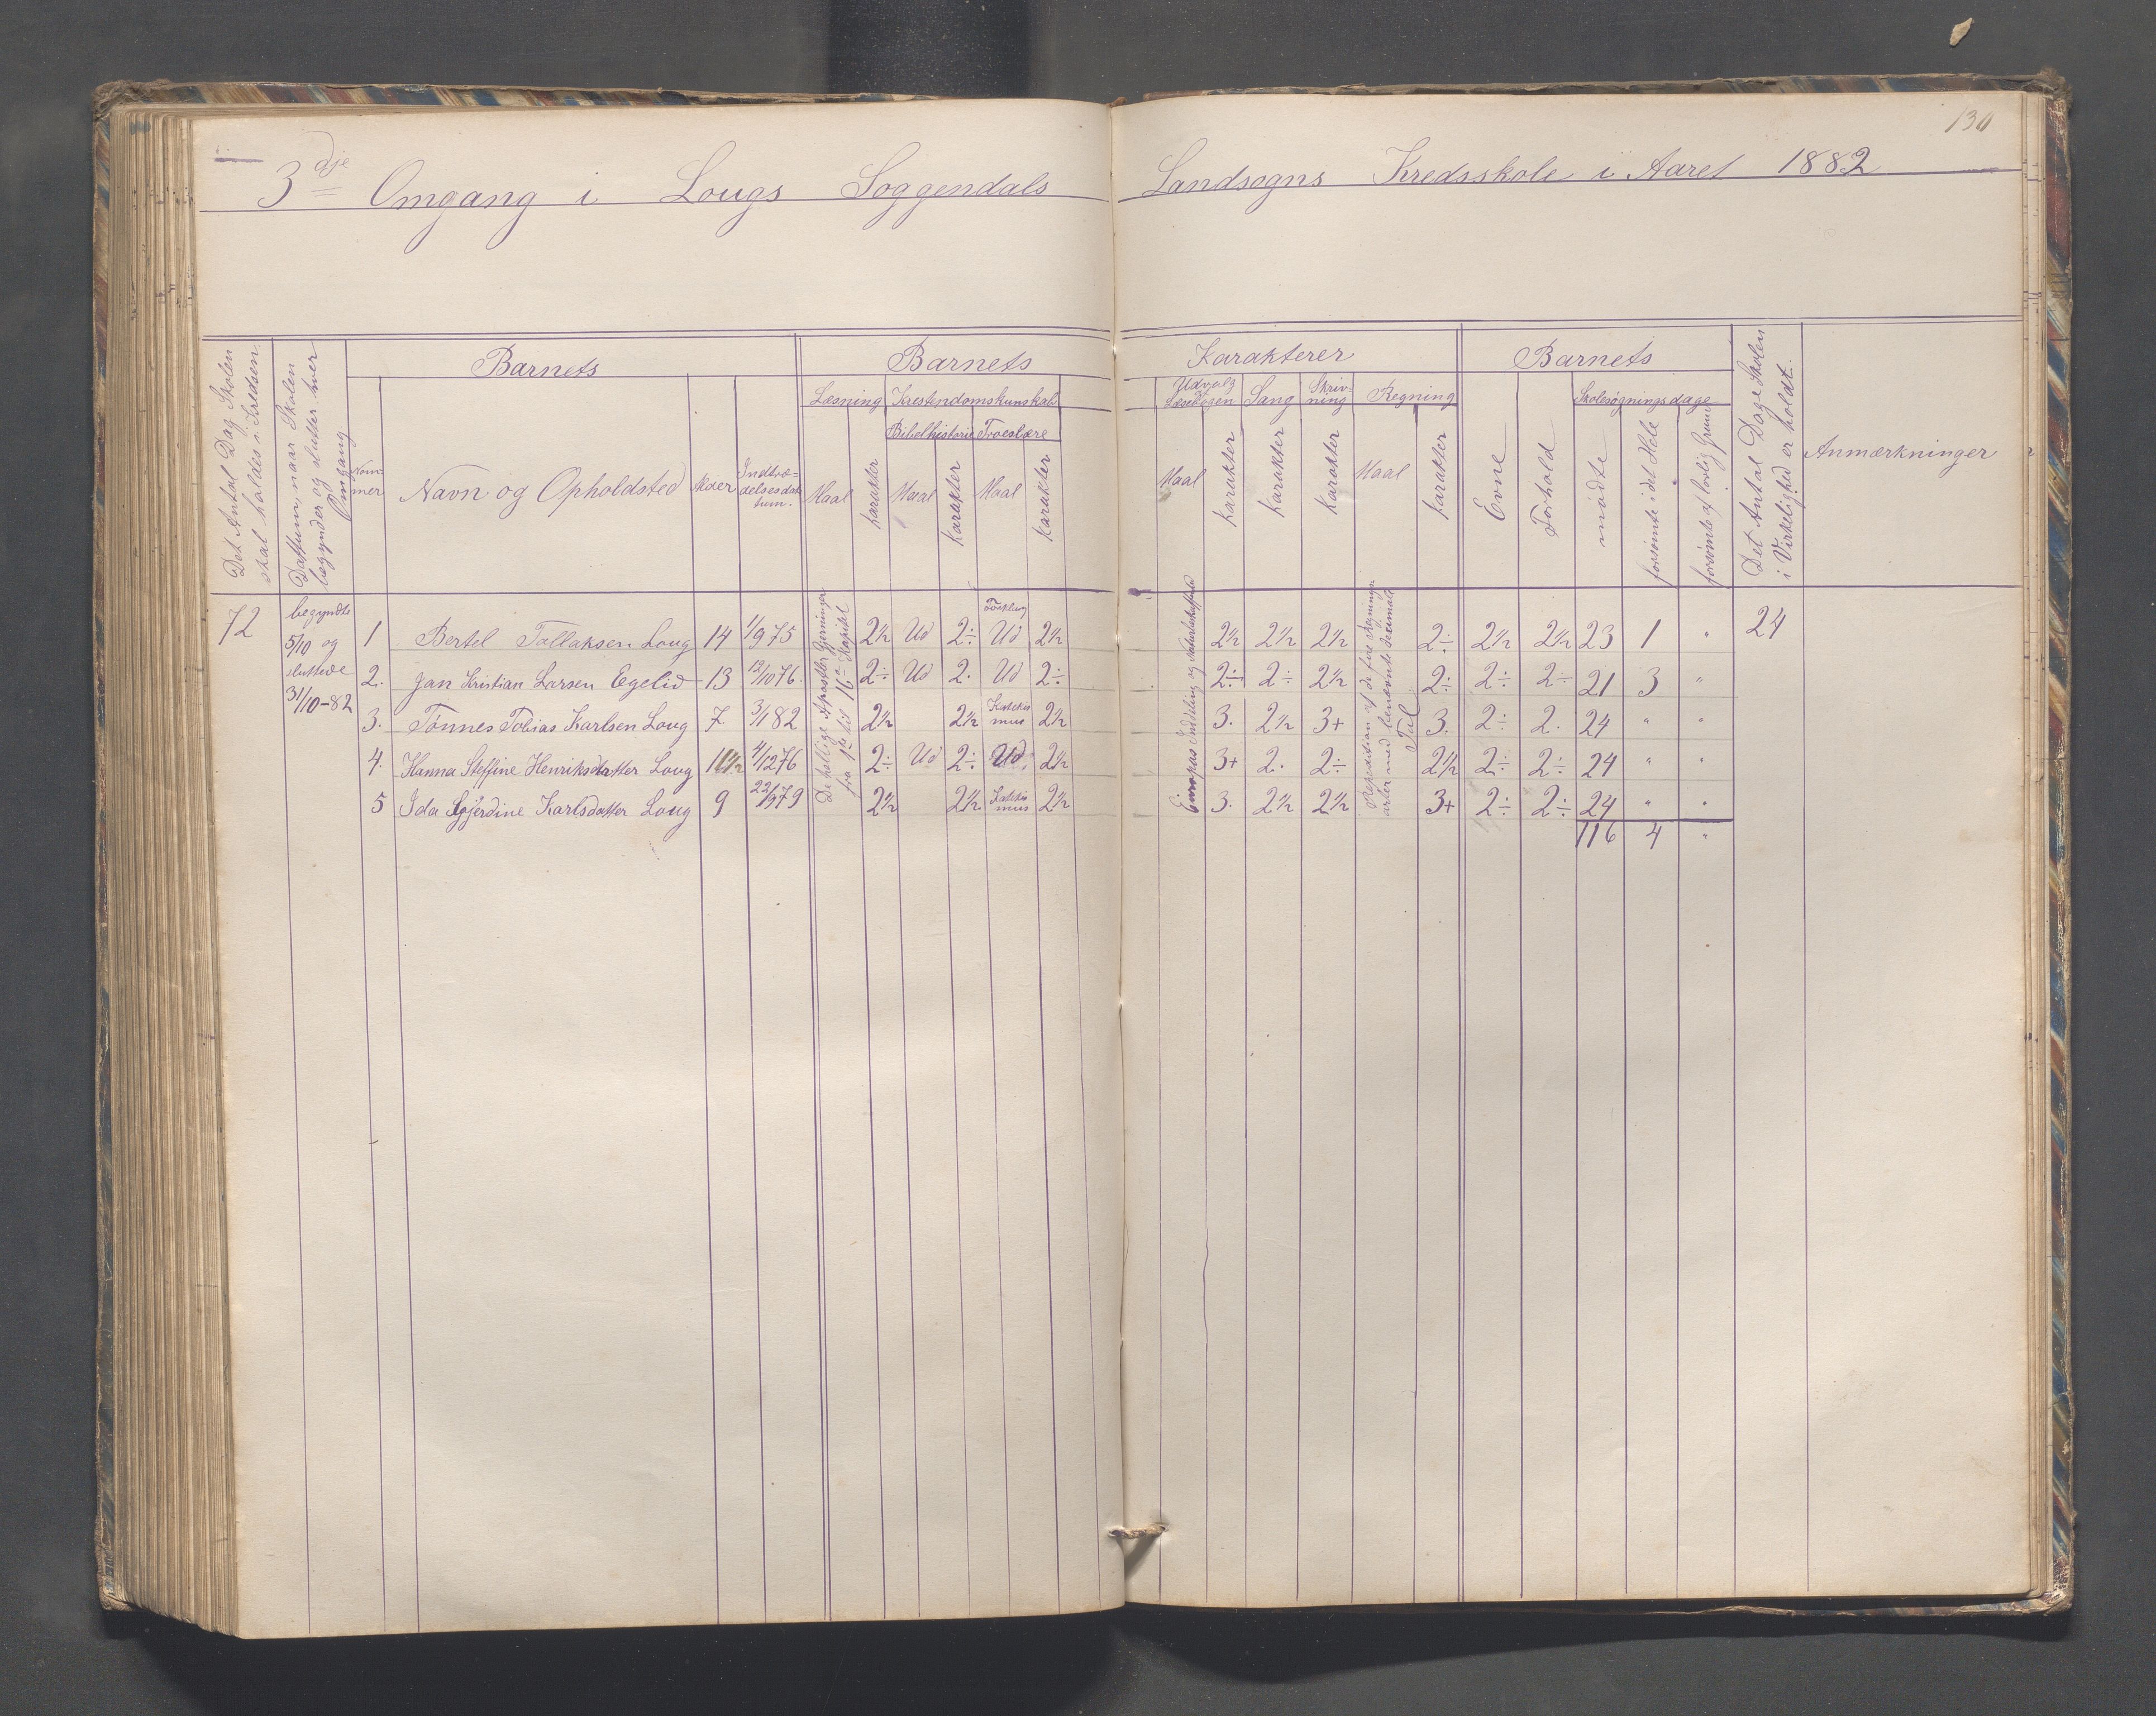 130
3dje Omgang i Lougs Soggendals Landsogns Kredsskole i Aaret 1882
Det Antal Dag Skolen skal holdes i Kredsen
Dattum, naar Skolen begynder og slutter hver Omgang
Barnets
Nummer
Navn og Opholdsted
Alder
Indtrædelsesdattum.
Barnets Karakterer
Læsning
Maal
karakter
Kristendomskunskab
Bibelhistorie
Maal
karakter
Troeslære
Maal
karakter
Udvalg Læsebogen
Maal
karakter
Sang
karakter
Skrivning
karakter
Regning
Maal
karakter
Barnets
Evne
Forhold
Skolesøgningsdage
mødte
forsømte i det Hele
forsømte af lovlig Grund
Det Antal Dage Skolen i Virkelighed er holdt.
Anmærkninger
72
begyndte
5/10 og
sluttede
31/10-82
De hellige Apostlers Gjerninger fra 1te til 16de Kapitel
Europas Inddeling og
Repedition af de fire Regningsarter med benævnte decimale Tal
1 Bertel Tollaksen Loug 14 1/9 75 2½ Ud 2÷ Forklring Ud 2½ 2½ 2½ 2½ 2÷ 2½ 2½ 23 1 " 24
2. Jan Kristian Larsen Egelid 13 12/10 76. 2÷ Ud 2. Ud 2÷ 2÷ 2÷ 2½ 2÷ 2÷ 2÷ 21 3 "
3. Tønnes Tobias Karlsen Loug 7. 3/1 82 2½ 2½ Katekismus 2½ 3. 2½ 3+ 3. 2÷ 2. 24 " "
4. Hanna Steffine Henriksdatter Loug 11½ 4/12 76 2÷ Ud 2÷ Ud. 2½ 3+ 2. 2÷ 2½ 2÷ 2÷ 24 " "
5 Ida Karlsdatter Loug 9 22/9 79 2½ 2½ Katekismus 2½ 3. 2½ 2½ 3+ 2÷ 2÷ 24 " "
116 4 "